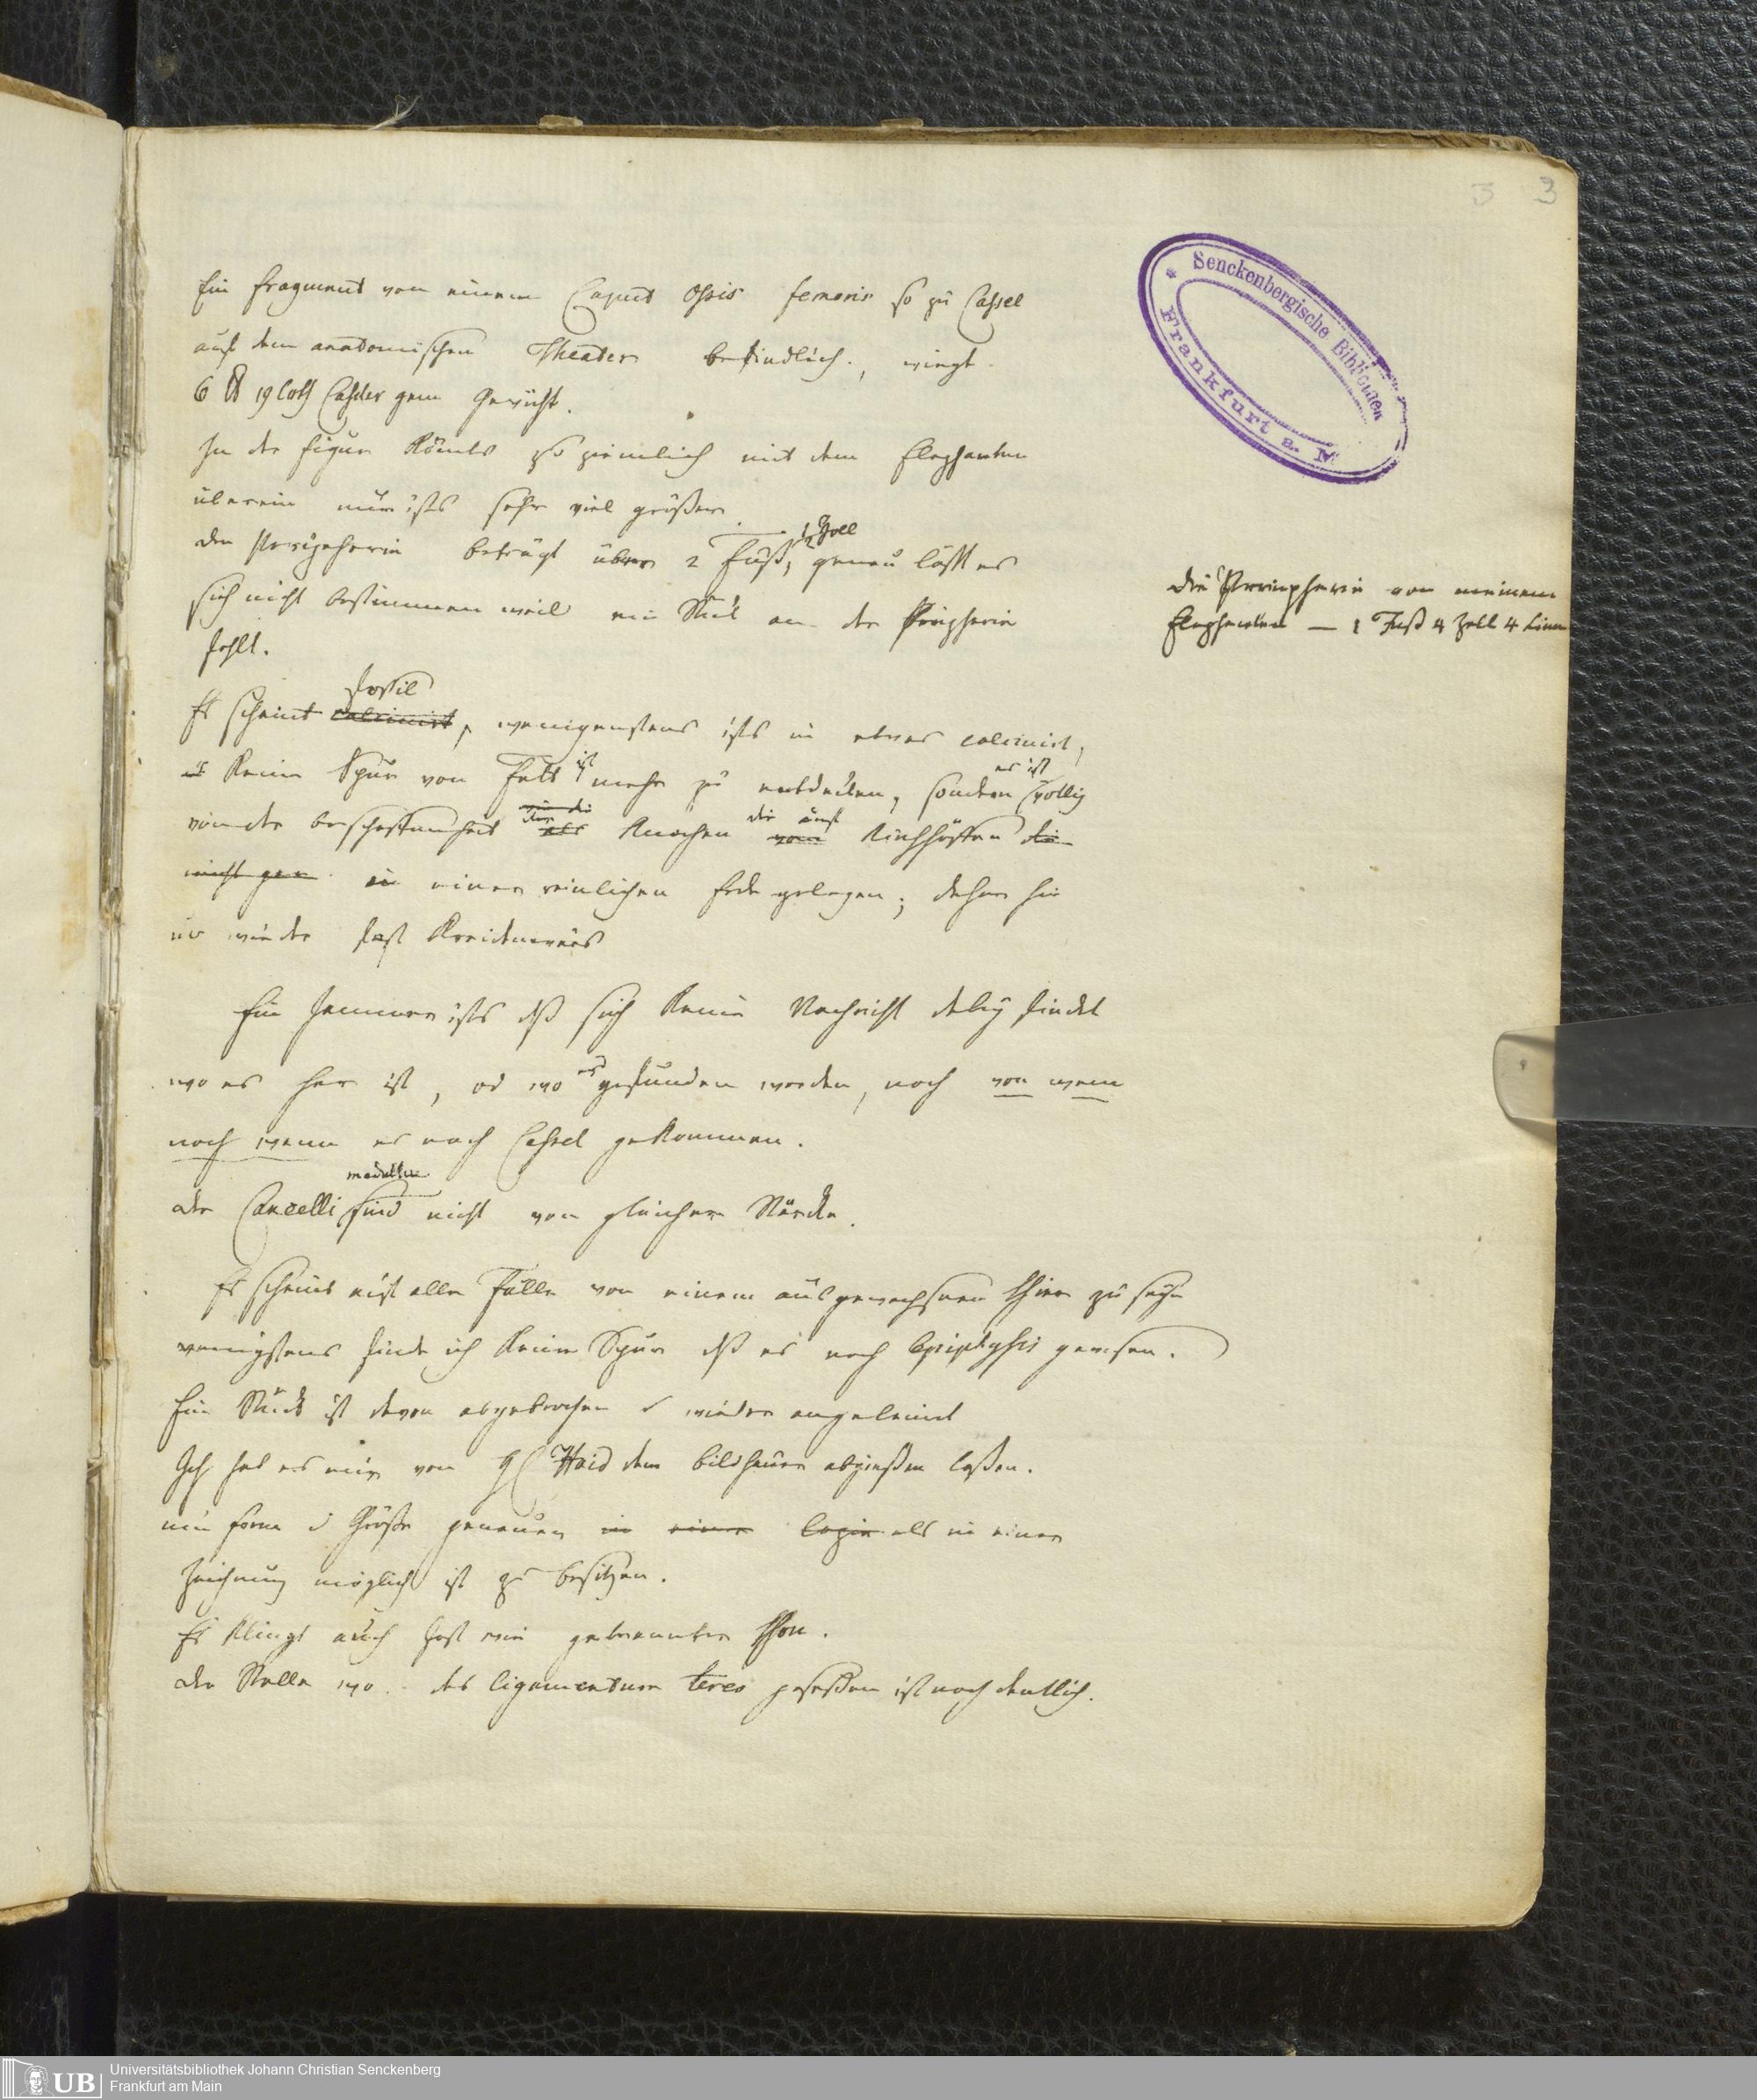 3 3
Senckenbergische Bibliothek
Frankfurt a. M
Ein Fragment von einem Caput Ossis femoris so zu Cassel
auf dem anatomischen Theater befindlich, wiegt
6 ℔ 19 Loth Casseler gem Gewicht.
In der Figur kömts so ziemlich mit dem Elephanten
überein nur ists sehr viel größer
die Peripherie beträgt über 2 Fuß, 1/2 Zoll genau läßt es
sich nicht bestimmen weil ein Stück an der Peripherie
fehlt.
Die Peripherie von meinem
Elephanten — 1 Fuß 4 Zoll 4 Linien
Es scheint calcinirt fossil, wenigstens ists in etwas calcinirt,
keine Spur von Fett ist mehr zu entdecken, sondern es ist völlig
von der Beschaffenheit der Knochen die auf Kirchhöfen die
nicht gar in einer reinlichen Erde gelegen; daher hie
und wieder fast kreidenweis
Ein Jammer ists daß sich keine Nachricht dabey findet
wo es her ist, od wo es gefunden worden, noch von wem
noch wenn es nach Cassel gekommen.
die Cancelli medullae sind nicht von gleicher Stärcke.
Es scheint auf alle Fälle von einem ausgewachsenen Thier zu seyn
wenigstens finde ich keine Spur daß es noch Epiphysis gewesen.
Ein Stück ist davon abgebrochen u wieder angeleimt
Ich hab es mir von H Haid dem Bildhauer abgießen laßen.
um Form u Größe genauer in einer Copie als in einer
Zeichnung möglich ist zu besitzen.
Es klingt auch fast wie gebrannter Thon.
die Stelle wo das ligamentum teres geseßen ist noch deutlich.
UB Universitätsbibliothek Johann Christian Senckenberg
Frankfurt am Main